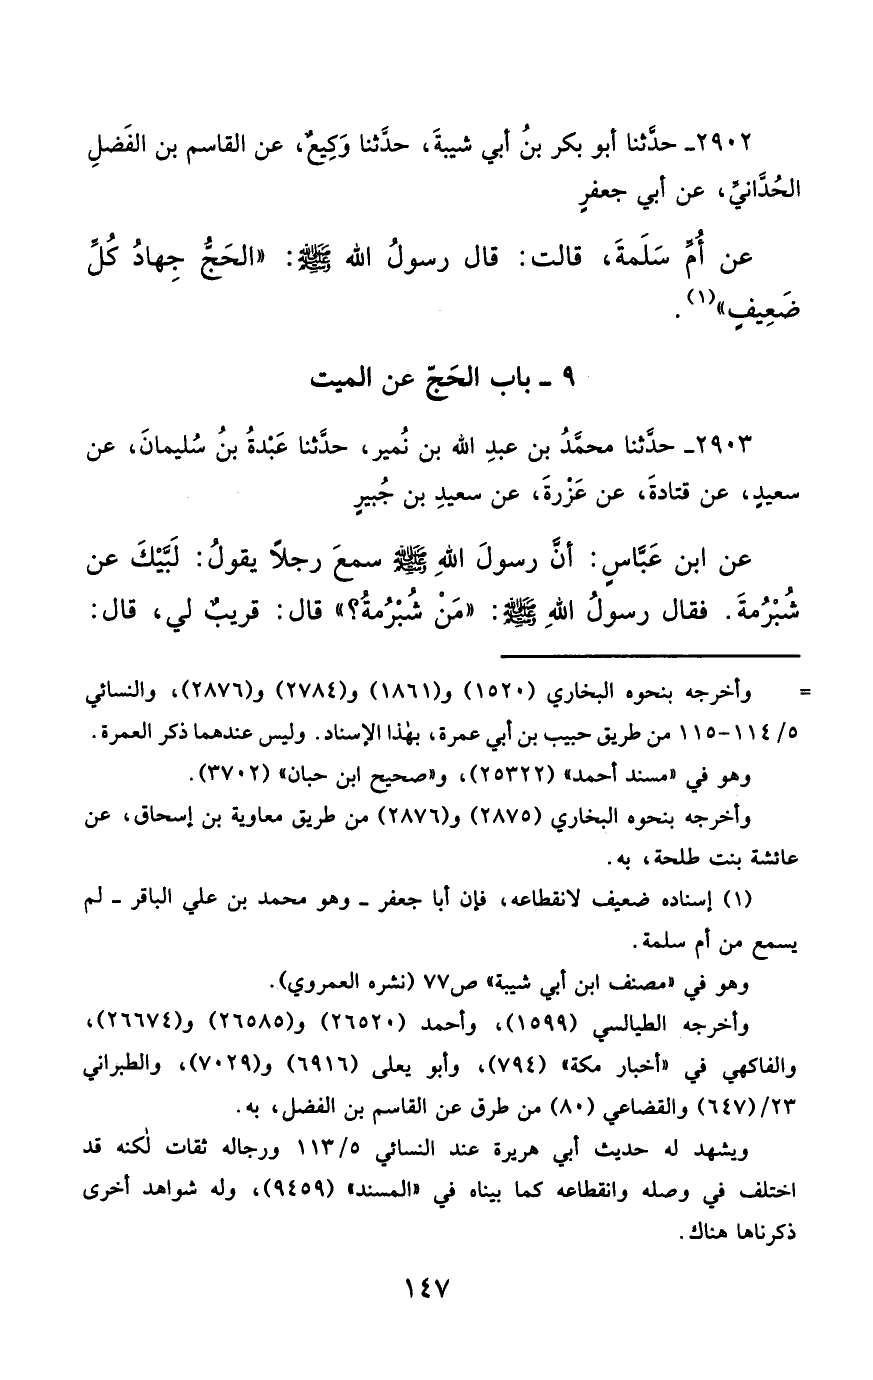 ٢٩٠٢ـ حدَّثنا أبو بكر بنُ أبي شيبةَ، حدَّثنا وَكِيعٌ، عن القاسم بن الفَضلِ
الحُدَّانيِّ، عن أبي جعفرٍ
عن أُمِّ سَلَمةَ، قالت: قال رسولُ الله ﷺ: «الحَجُّ جِهادُ كُلِّ
ضَعِيفٍ»(١).
٩ ـ باب الحَجّ عن الميت
٢٩٠٣ـ حدَّثنا محمَّدُ بن عبدِ الله بن نُمير، حدَّثنا عَبْدةُ بنُ سُليمانَ، عن
سعيدٍ، عن قتادةَ، عن عَزْرةَ، عن سعيدِ بن جُبيرٍ
عن ابن عَبَّاسٍ: أنَّ رسولَ اللهِ ﷺ سمعَ رجلاً يقولُ: لَبَّيْكَ عن
شُبْرُمةَ. فقال رسولُ اللهِ ﷺ: «مَنْ شُبْرُمةُ؟» قال: قريبٌ لي، قال:
= وأخرجه بنحوه البخاري (١٥٢٠) و(١٨٦١) و(٢٧٨٤) و(٢٨٧٦)، والنسائي
٥/ ١١٤-١١٥ من طريق حبيب بن أبي عمرة، بهٰذا الإسناد. وليس عندهما ذكر العمرة.
وهو في «مسند أحمد» (٢٥٣٢٢)، و«صحيح ابن حبان» (٣٧٠٢).
وأخرجه بنحوه البخاري (٢٨٧٥) و(٢٨٧٦) من طريق معاوية بن إسحاق، عن
عائشة بنت طلحة، به.
(١) إسناده ضعيف لانقطاعه، فإن أبا جعفر ـ وهو محمد بن علي الباقر ـ لم
يسمع من أم سلمة.
وهو في «مصنف ابن أبي شيبة» ص٧٧ (نشره العمروي).
وأخرجه الطيالسي (١٥٩٩)، وأحمد (٢٦٥٢٠) و(٢٦٥٨٥) و(٢٦٦٧٤)،
والفاكهي في «أخبار مكة» (٧٩٤)، وأبو يعلى (٦٩١٦) و(٧٠٢٩)، والطبراني
٢٣/(٦٤٧) والقضاعي (٨٠) من طرق عن القاسم بن الفضل، به.
ويشهد له حديث أبي هريرة عند النسائي ٥/ ١١٣ ورجاله ثقات لٰكنه قد
اختلف في وصله وانقطاعه كما بيناه في «المسند» (٩٤٥٩)، وله شواهد أخرى
ذكرناها هناك.
١٤٧